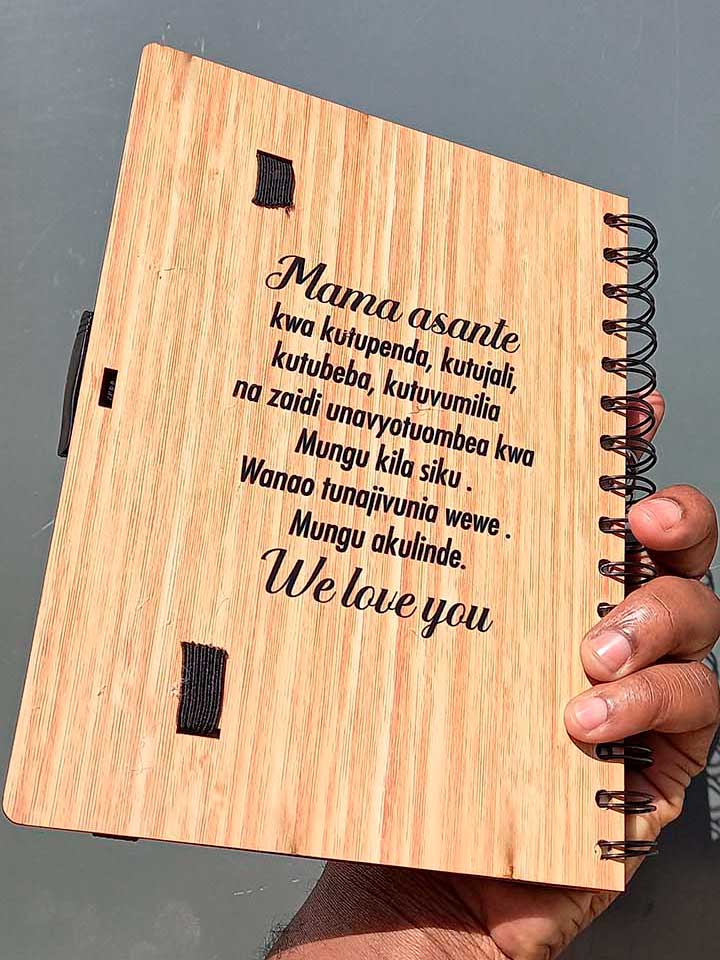 Mama asante
kwa kutupenda, kutujali,
kutubeba, kutuvumilia
na zaidi unavyotuombea kwa
Mungu kila siku .
Wanao tunajivunia wewe .
Mungu akulinde.
We love you